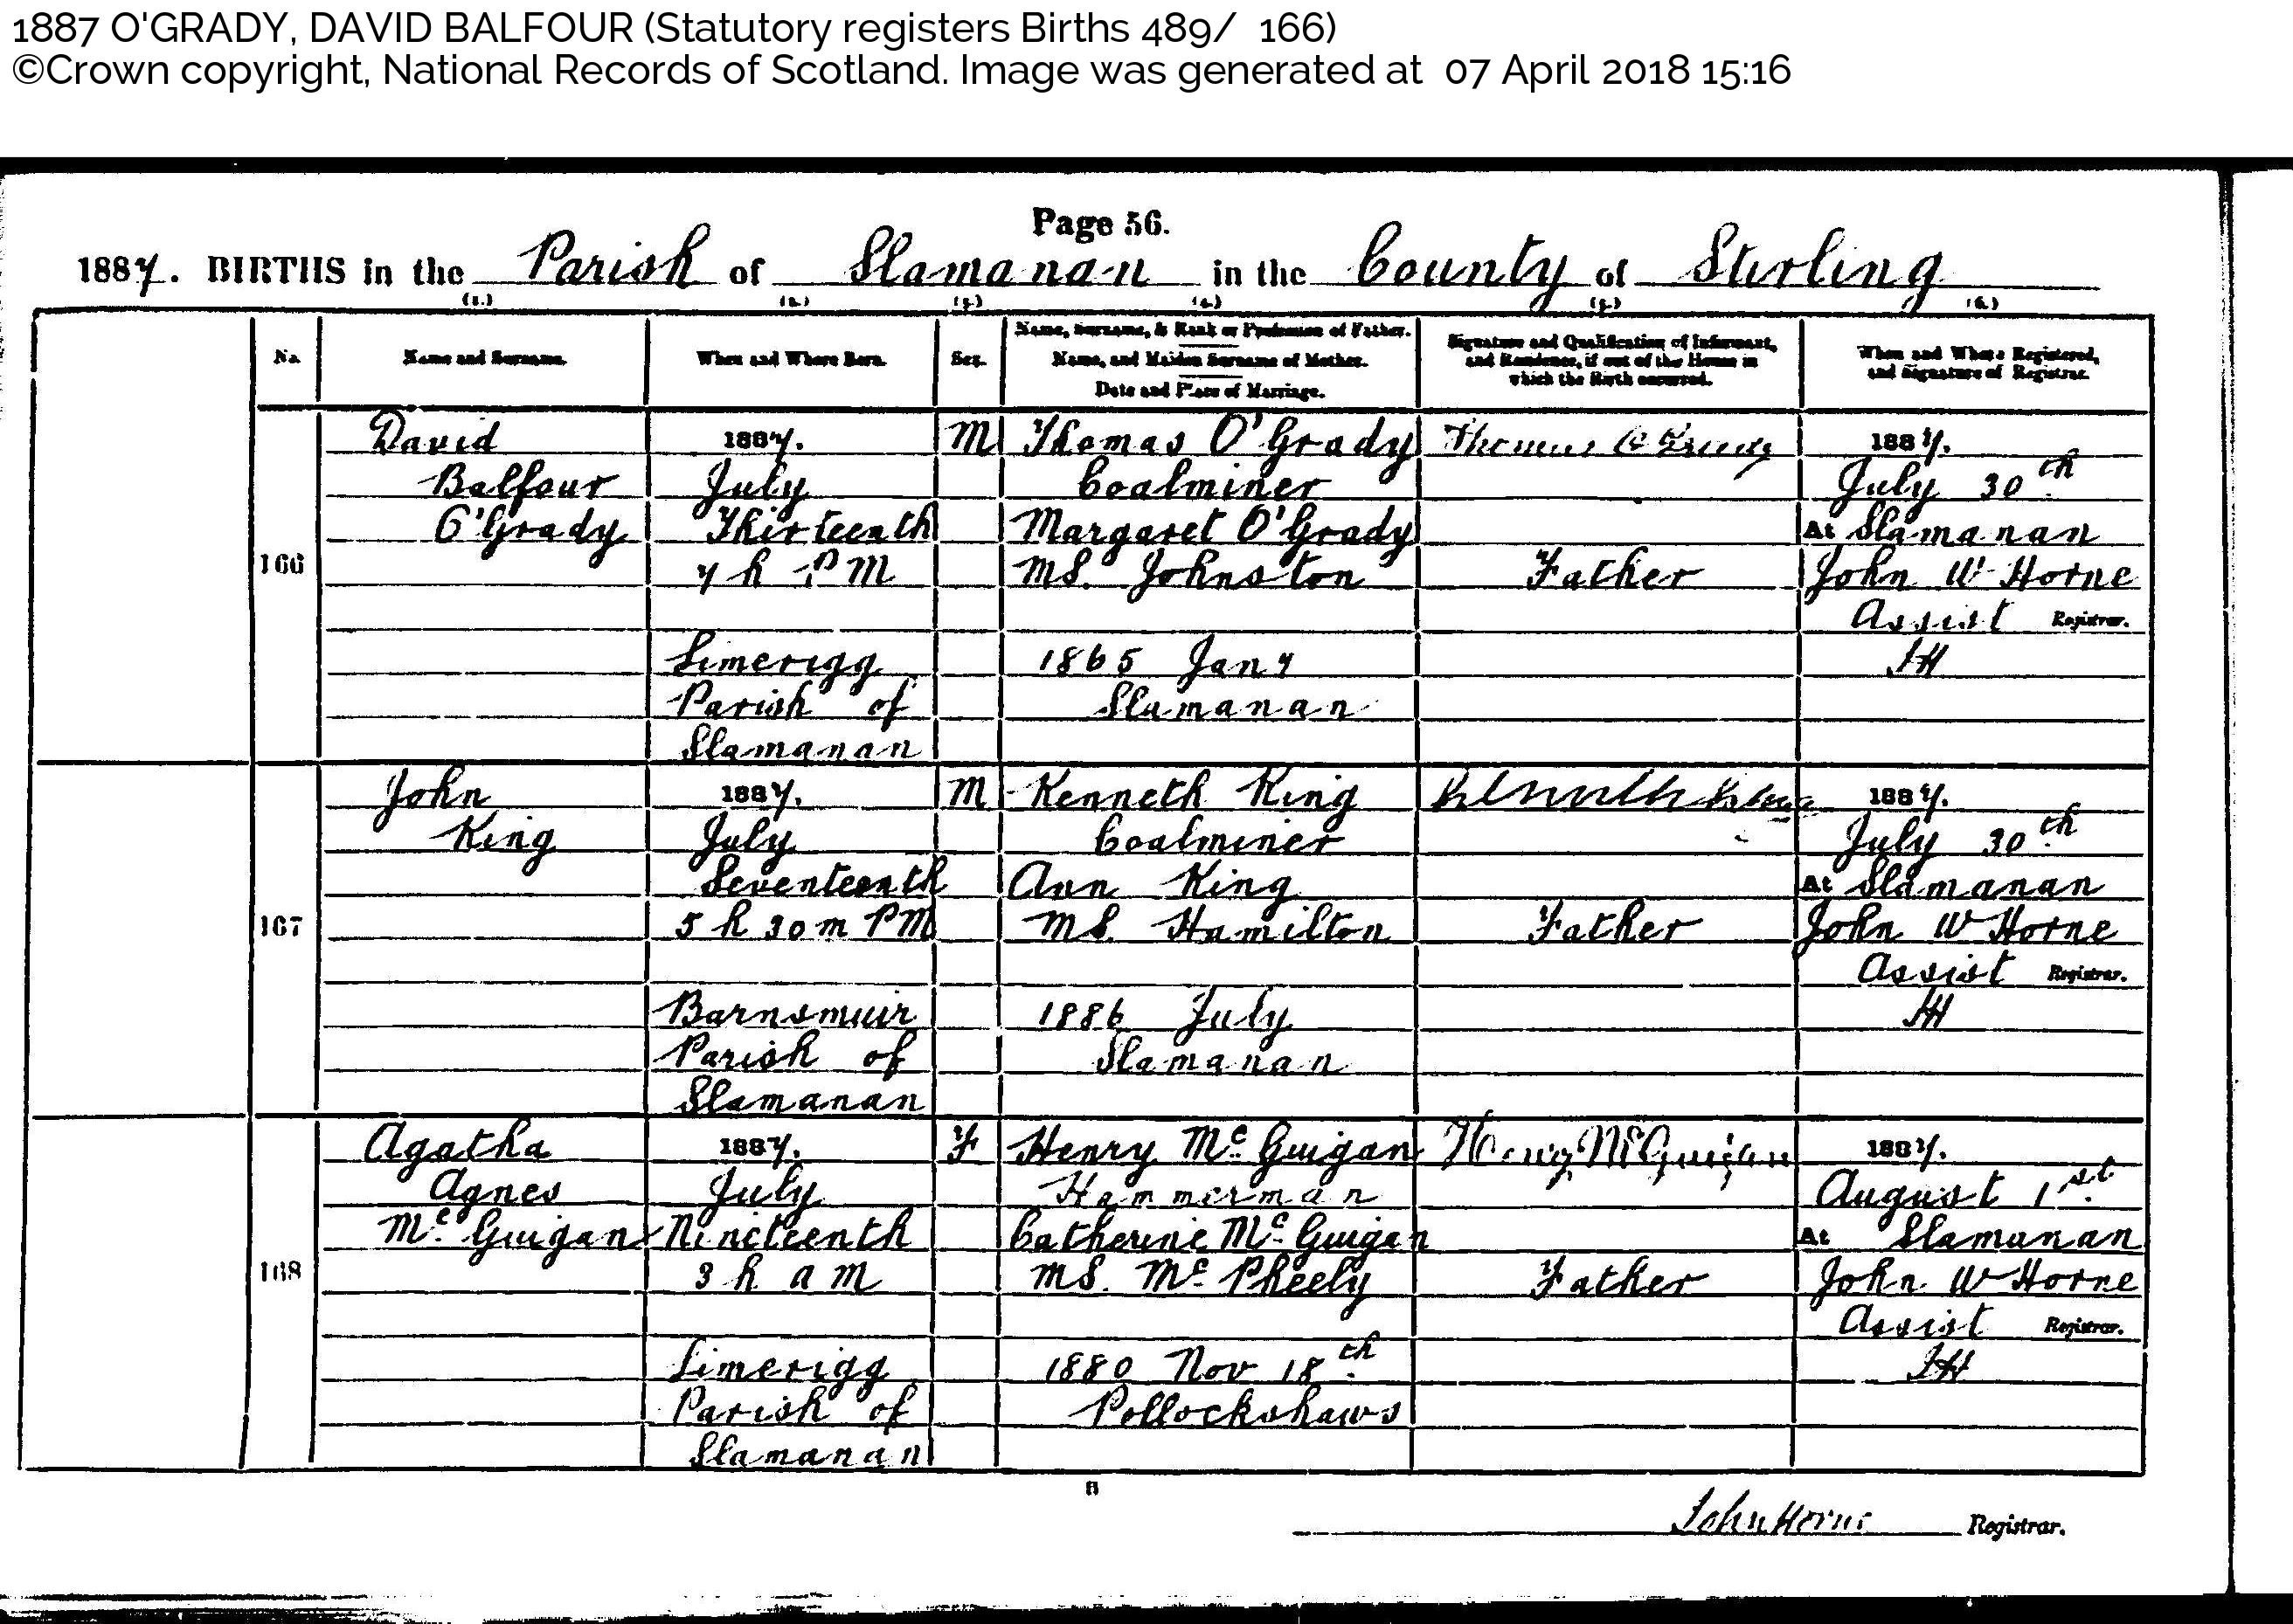 1887 O'GRADY, DAVID BALFOUR (Statutory registers Births 489/ 166)
©Crown copyright, National Records of Scotland. Image was generated at 07 April 2018 15:16
Page 56.
1887. BIRTHS in the Parish of Slamanan in the County of Stirling
(1.) (2.) (3.) (4.) (5.) (6.)
No.
Name and Surname.
When and Where Born.
Sex.
Name, Surname, & Rank or Profession of Father.
Name, and Maiden Surname of Mother.
Date and Place of Marriage.
Signature and Qualification of Informant,
and Residence, if out of the House in
which the Birth occurred.
When and Where Registered,
and Signature of Registrar.
166
David
Balfour
O'Grady
1887.
July
Thirteenth
7 h PM
Limerigg
Parish of
Slamanan
M
Thomas O'Grady
Coalminer
Margaret O'Grady
MS. Johnston
1865 Jany
Slamanan
Thomas O Grady
Father
1887.
July 30th
At Slamanan
John W Horne
Assist Registrar.
JH
167
John
King
1887.
July
Seventeenth
5 h 30 m PM
Barnsmuir
Parish of
Slamanan
M
Kenneth King
Coalminer
Ann King
MS. Hamilton
1886 July
Slamanan
Kenneth King
Father
1887.
July 30th
At Slamanan
John W Horne
Assist Registrar.
JH
168
Agatha
Agnes
Mc Guigan
1887.
July
Nineteenth
3 h a m
Limerigg
Parish of
Slamanan
F
Henry Mc Guigan
Hammerman
Catherine Mc Guigan
MS. Mc Pheely
1880 Nov 18th
Pollockshaws
Henry McGuigan
Father
1887.
August 1st
At Slamanan
John W Horne
Assist Registrar.
JH
John Horne Registrar.